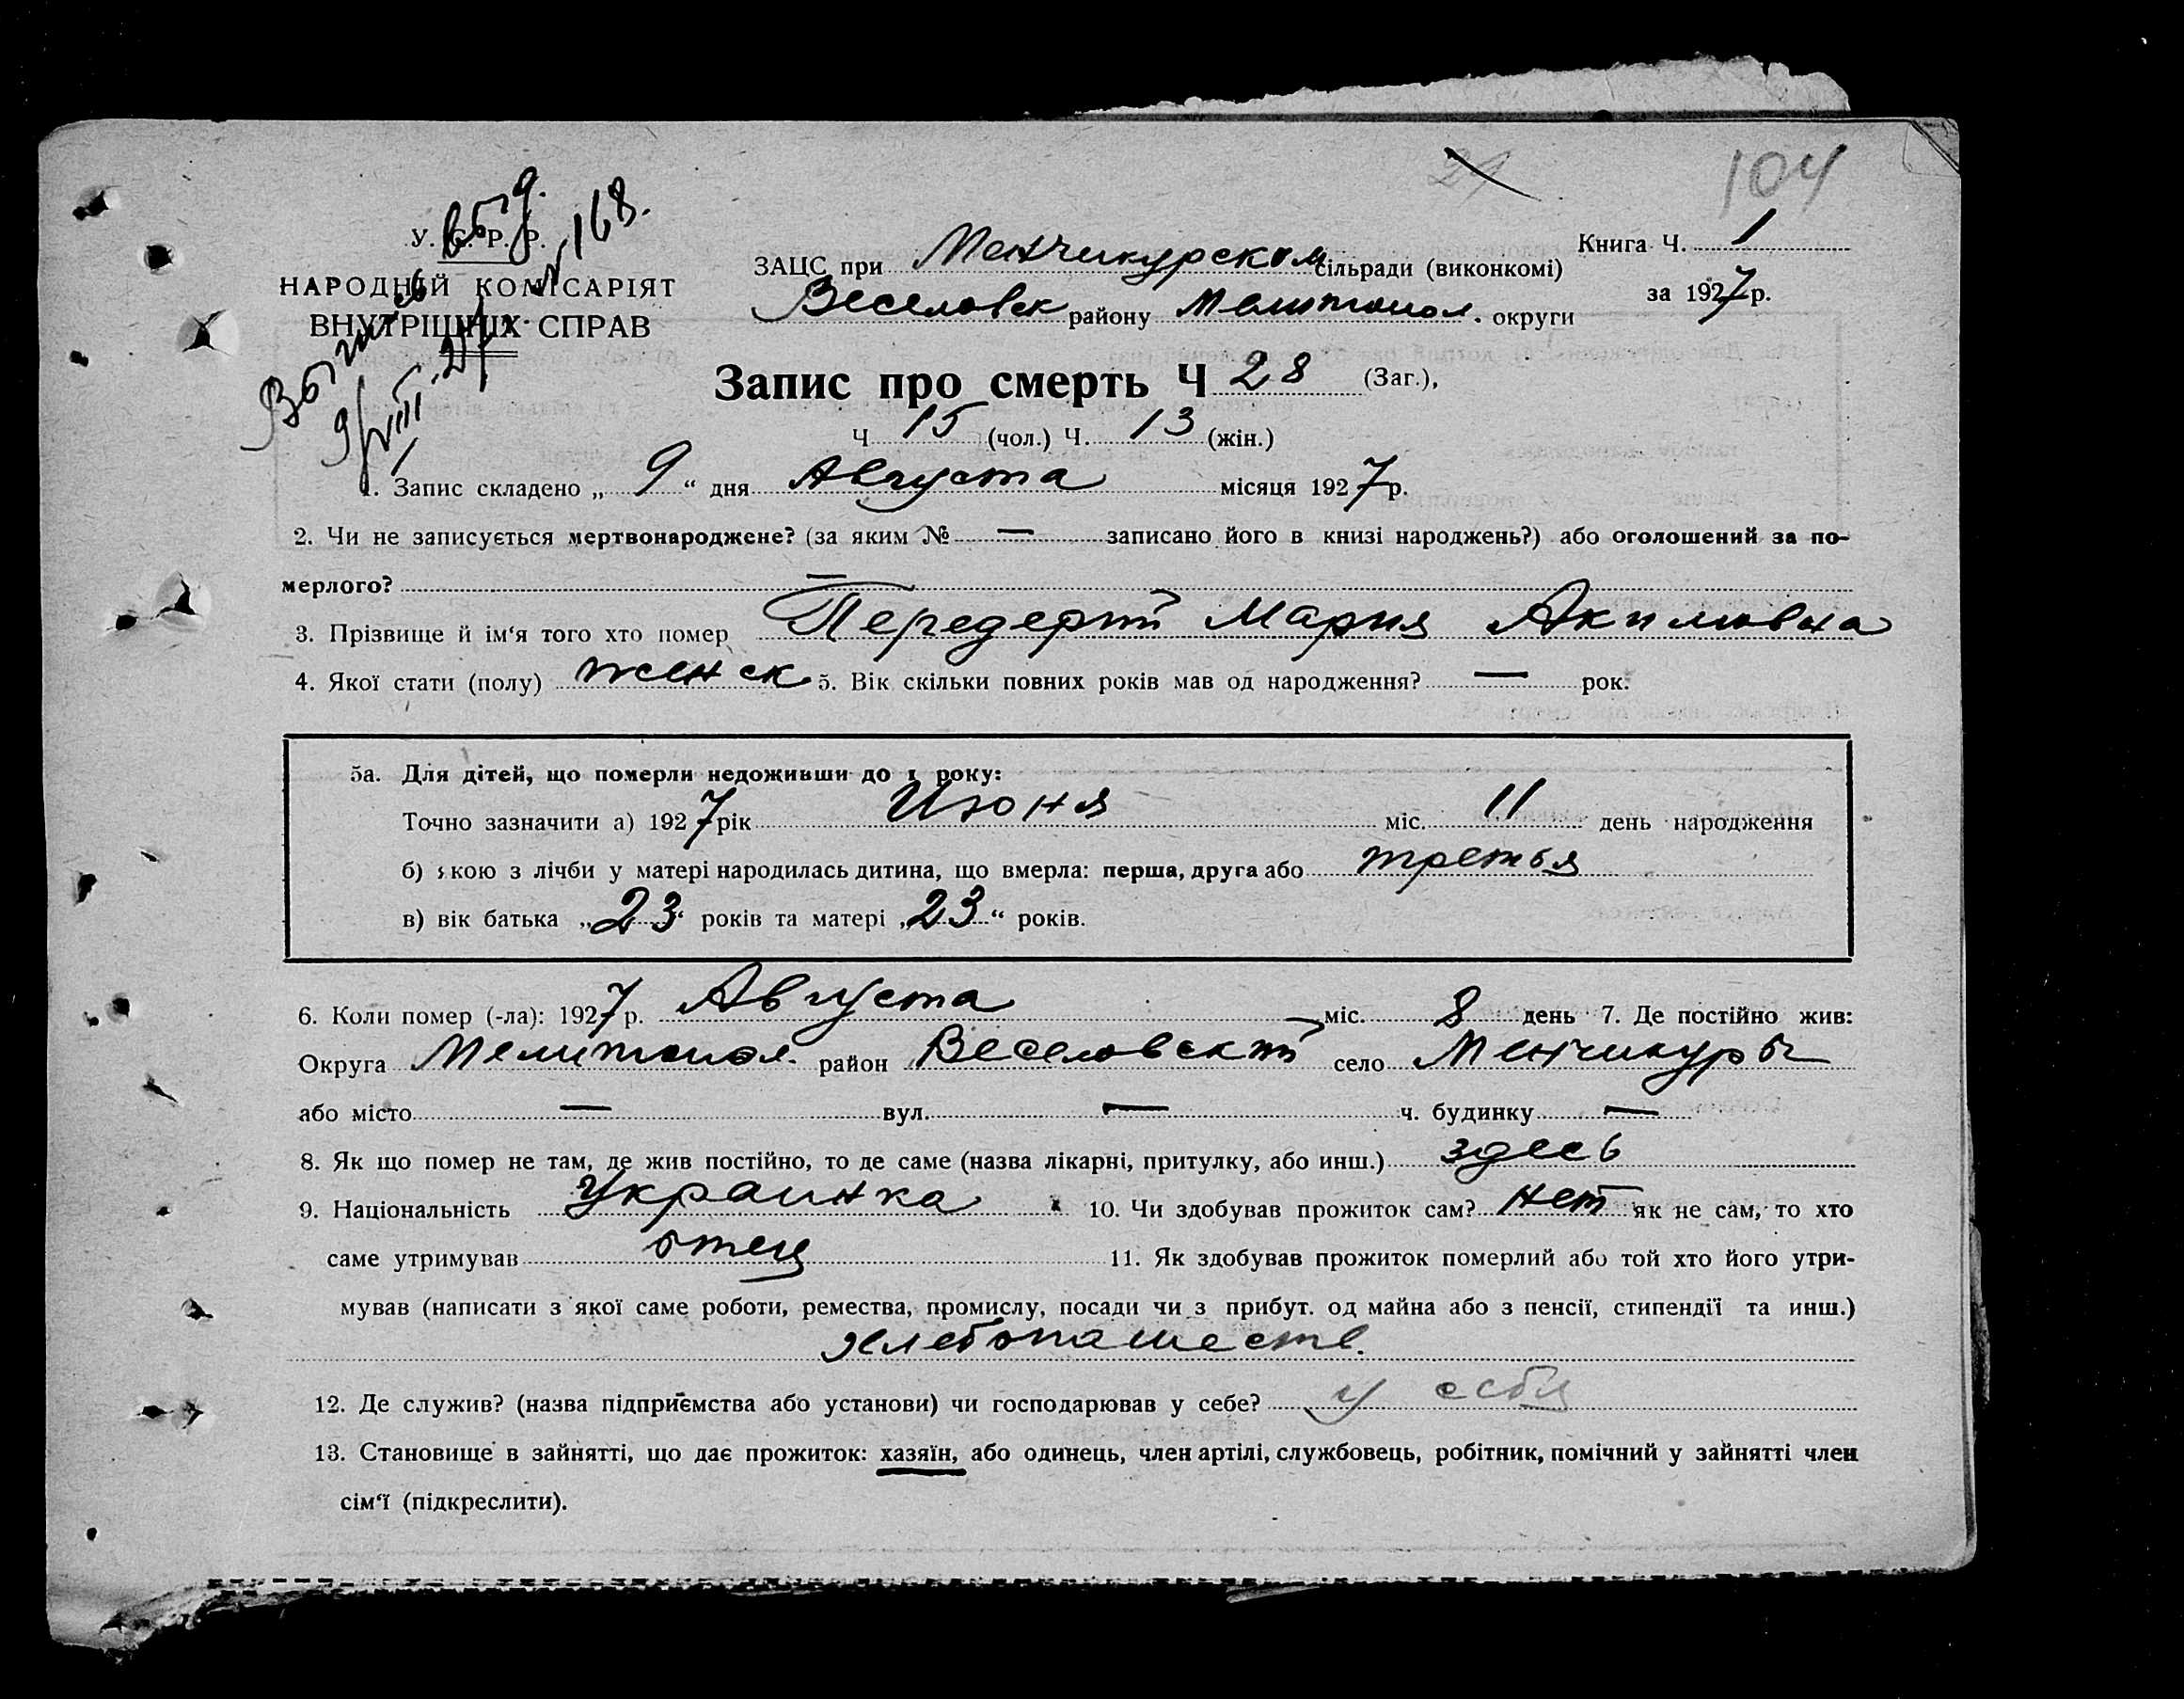 104
У. С. Р. Р.
№ 168.
НАРОДНІЙ КОМІСАРІЯТ
ВНУТРІШНІХ СПРАВ
9/VIII-27
Книга Ч. 1
ЗАЦС при Менчикурском сільради (виконкомі)
за 1927 р.
Веселовск району Мелитопол. округи
Запис про смерть Ч 28 (Заг.),
Ч 15 (чол.) Ч. 13 (жін.)
1. Запис складено „ 9 “ дня Августа місяця 1927 р.
2. Чи не записується мертвонароджене? (за яким № — записано його в книзі народжень?) або оголошений за по-
мерлого? —
3. Прізвище й ім‘я того хто помер Передерий Мария Акимовна
4. Якої стати (полу) женск 5. Вік скільки повних років мав од народження? — рок.
5а. Для дітей, що померли недоживши до 1 року:
Точно зазначити а) 1927 рік Июня міс. 11 день народження
б) якою з лічби у матері народилась дитина, що вмерла: перша, друга або третья
в) вік батька „23“ років та матері „23“ років.
6. Коли помер (-ла): 1927 р. Августа міс. 8 день 7. Де постійно жив:
Округа Мелитопол. район Веселовский село Менчикуры
або місто — вул. — ч. будинку —
8. Як що помер не там, де жив постійно, то де саме (назва лікарні, притулку, або инш.) здесь
9. Національність Украинка 10. Чи здобував прожиток сам? нет як не сам, то хто
саме утримував отец 11. Як здобував прожиток померлий або той хто його утри-
мував (написати з якої саме роботи, ремества, промислу, посади чи з прибут. од майна або з пенсії, стипендії та инш.)
хлебопашеств.
12. Де служив? (назва підприємства або установи) чи господарював у себе? у себя
13. Становище в зайнятті, що дає прожиток: хазяїн, або одинець, член артілі, службовець, робітник, помічний у зайнятті член
сім‘ї (підкреслити).